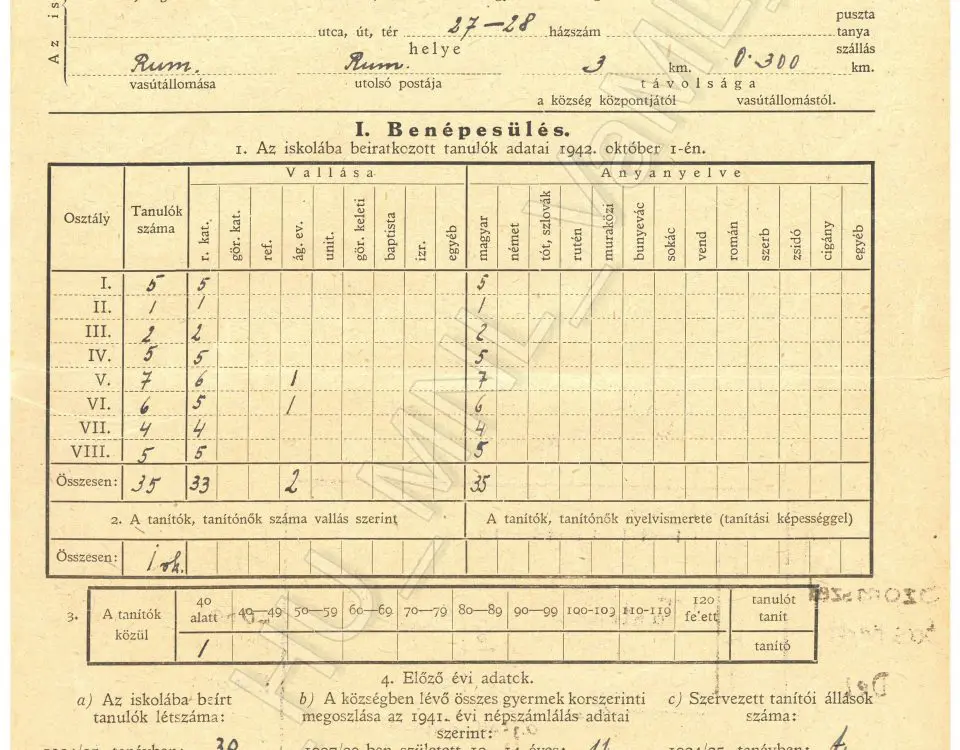 Az is
puszta
utca, út, tér 27—28 házszám tanya
helye szállás
Rum. Rum. 3 km. 0·300 km.
vasútállomása utolsó postája távolsága
a község központjától vasútállomástól.
I. Benépesülés.
1. Az iskolába beiratkozott tanulók adatai 1942. október 1-én.
Osztály Tanulók száma Vallása Anyanyelve
r. kat. gör. kat. ref. ág. ev. unit. gör. keleti baptista izr. egyéb magyar német tót, szlovák rutén muraközi bunyevác sokác vend román szerb zsidó cigány egyéb
I. 5 5 5
II. 1 1 1
III. 2 2 2
IV. 5 5 5
V. 7 6 1 7
VI. 6 5 1 6
VII. 4 4 4
VIII. 5 5 5
Összesen: 35 33 2 35
2. A tanítók, tanítónők száma vallás szerint A tanítók, tanítónők nyelvismerete (tanítási képességgel)
Összesen: 1 ok.
3. A tanítók közül 40 alatt 40—49 50—59 60—69 70—79 80—89 90—99 100-109 110-119 120 felett tanulót tanít
1 tanító
4. Előző évi adatok.
a) Az iskolába beírt b) A községben lévő összes gyermek korszerinti c) Szervezett tanítói állások
tanulók létszáma: megoszlása az 1941. évi népszámlálás adatai száma:
szerint:
HU_MNL_VaML